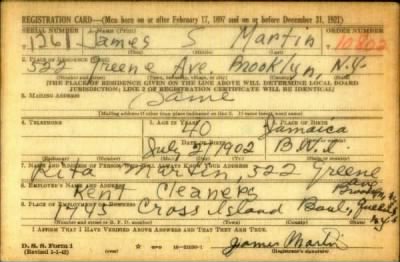 REGISTRATION CARD—(Men born on or after February 17, 1897 and on or before December 31, 1921)
SERIAL NUMBER 1. NAME (Print) ORDER NUMBER
1261 James S Martin 10802
2. PLACE OF RESIDENCE (Print)
522 Greene Ave Brooklyn, N.Y.
[THE PLACE OF RESIDENCE GIVEN ON THE LINE ABOVE WILL DETERMINE LOCAL BOARD
JURISDICTION; LINE 2 OF REGISTRATION CERTIFICATE WILL BE IDENTICAL]
3. MAILING ADDRESS
Same
[Mailing address if other than place indicated on line 2. If same insert word same]
4. TELEPHONE 5. AGE IN YEARS 6. PLACE OF BIRTH
40 Jamaica
DATE OF BIRTH
July 27 1902 B.W.I
(Exchange) (Number) (Mo.) (Day) (Yr.) (State or country)
7. NAME AND ADDRESS OF PERSON WHO WILL ALWAYS KNOW YOUR ADDRESS
Rita Martin, 522 Greene
Ave
Brooklyn
8. EMPLOYER'S NAME AND ADDRESS
Kent Cleaners
1745 Cross Island Boul, Queens
N.Y.
I AFFIRM THAT I HAVE VERIFIED ABOVE ANSWERS AND THAT THEY ARE TRUE.
D. S. S. Form 1
(Revised 1-1-42)
James Martin
(Registrant's signature)